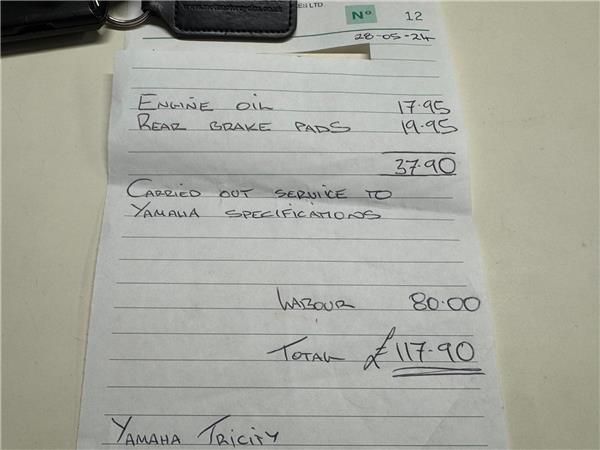 ES LTD
Nº 12
28-05-24
ENGINE OIL 17.95
REAR BRAKE PADS 19.95
37.90
CARRIED OUT SERVICE TO
YAMAHA SPECIFICATIONS
LABOUR 80.00
TOTAL £117.90
YAMAHA TRICITY